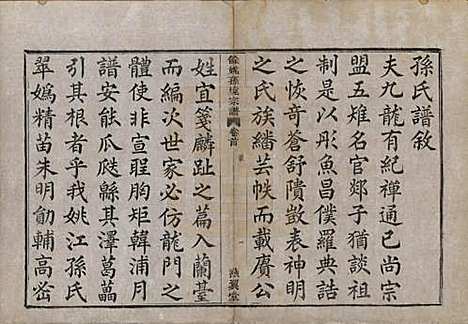 孫氏譜敘
夫九龍有紀禪通已尚宗
盟五雉名官郯子猶談祖
制是以彤魚昌僕羅典誥
之恢奇蒼舒隤敳表神明
之氏族繙芸帙而載賡公
餘姚孫境宗譜 卷首
燕翼堂
姓宜箋麟趾之篇入蘭臺
而編次世家必仿龍門之
體使非宣矩韓浦月
譜安能瓜瓞緜其澤葛藟
引其根者乎我姚江孫氏
翠嬀精苗朱明勛輔高密